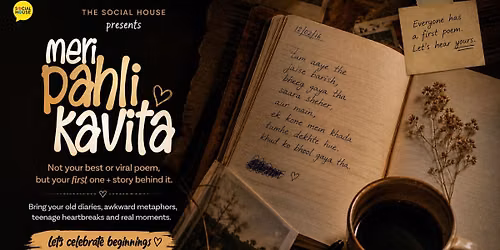 SOCIAL
HOUSE
THE SOCIAL HOUSE
presents
meri
pahli
kavita
Not your best or viral poem,
but your first one + story behind it.
Bring your old diaries, awkward metaphors,
teenage heartbreaks and real moments.
Let's celebrate beginnings
Tum aaye the
jaise barish,
bheeg gaya tha
saara sheher.
aur main,
ek kone mein khada
tumhe dekhte hue,
khud ko bhool gaya tha.
Everyone has
a first poem.
Let's hear yours.